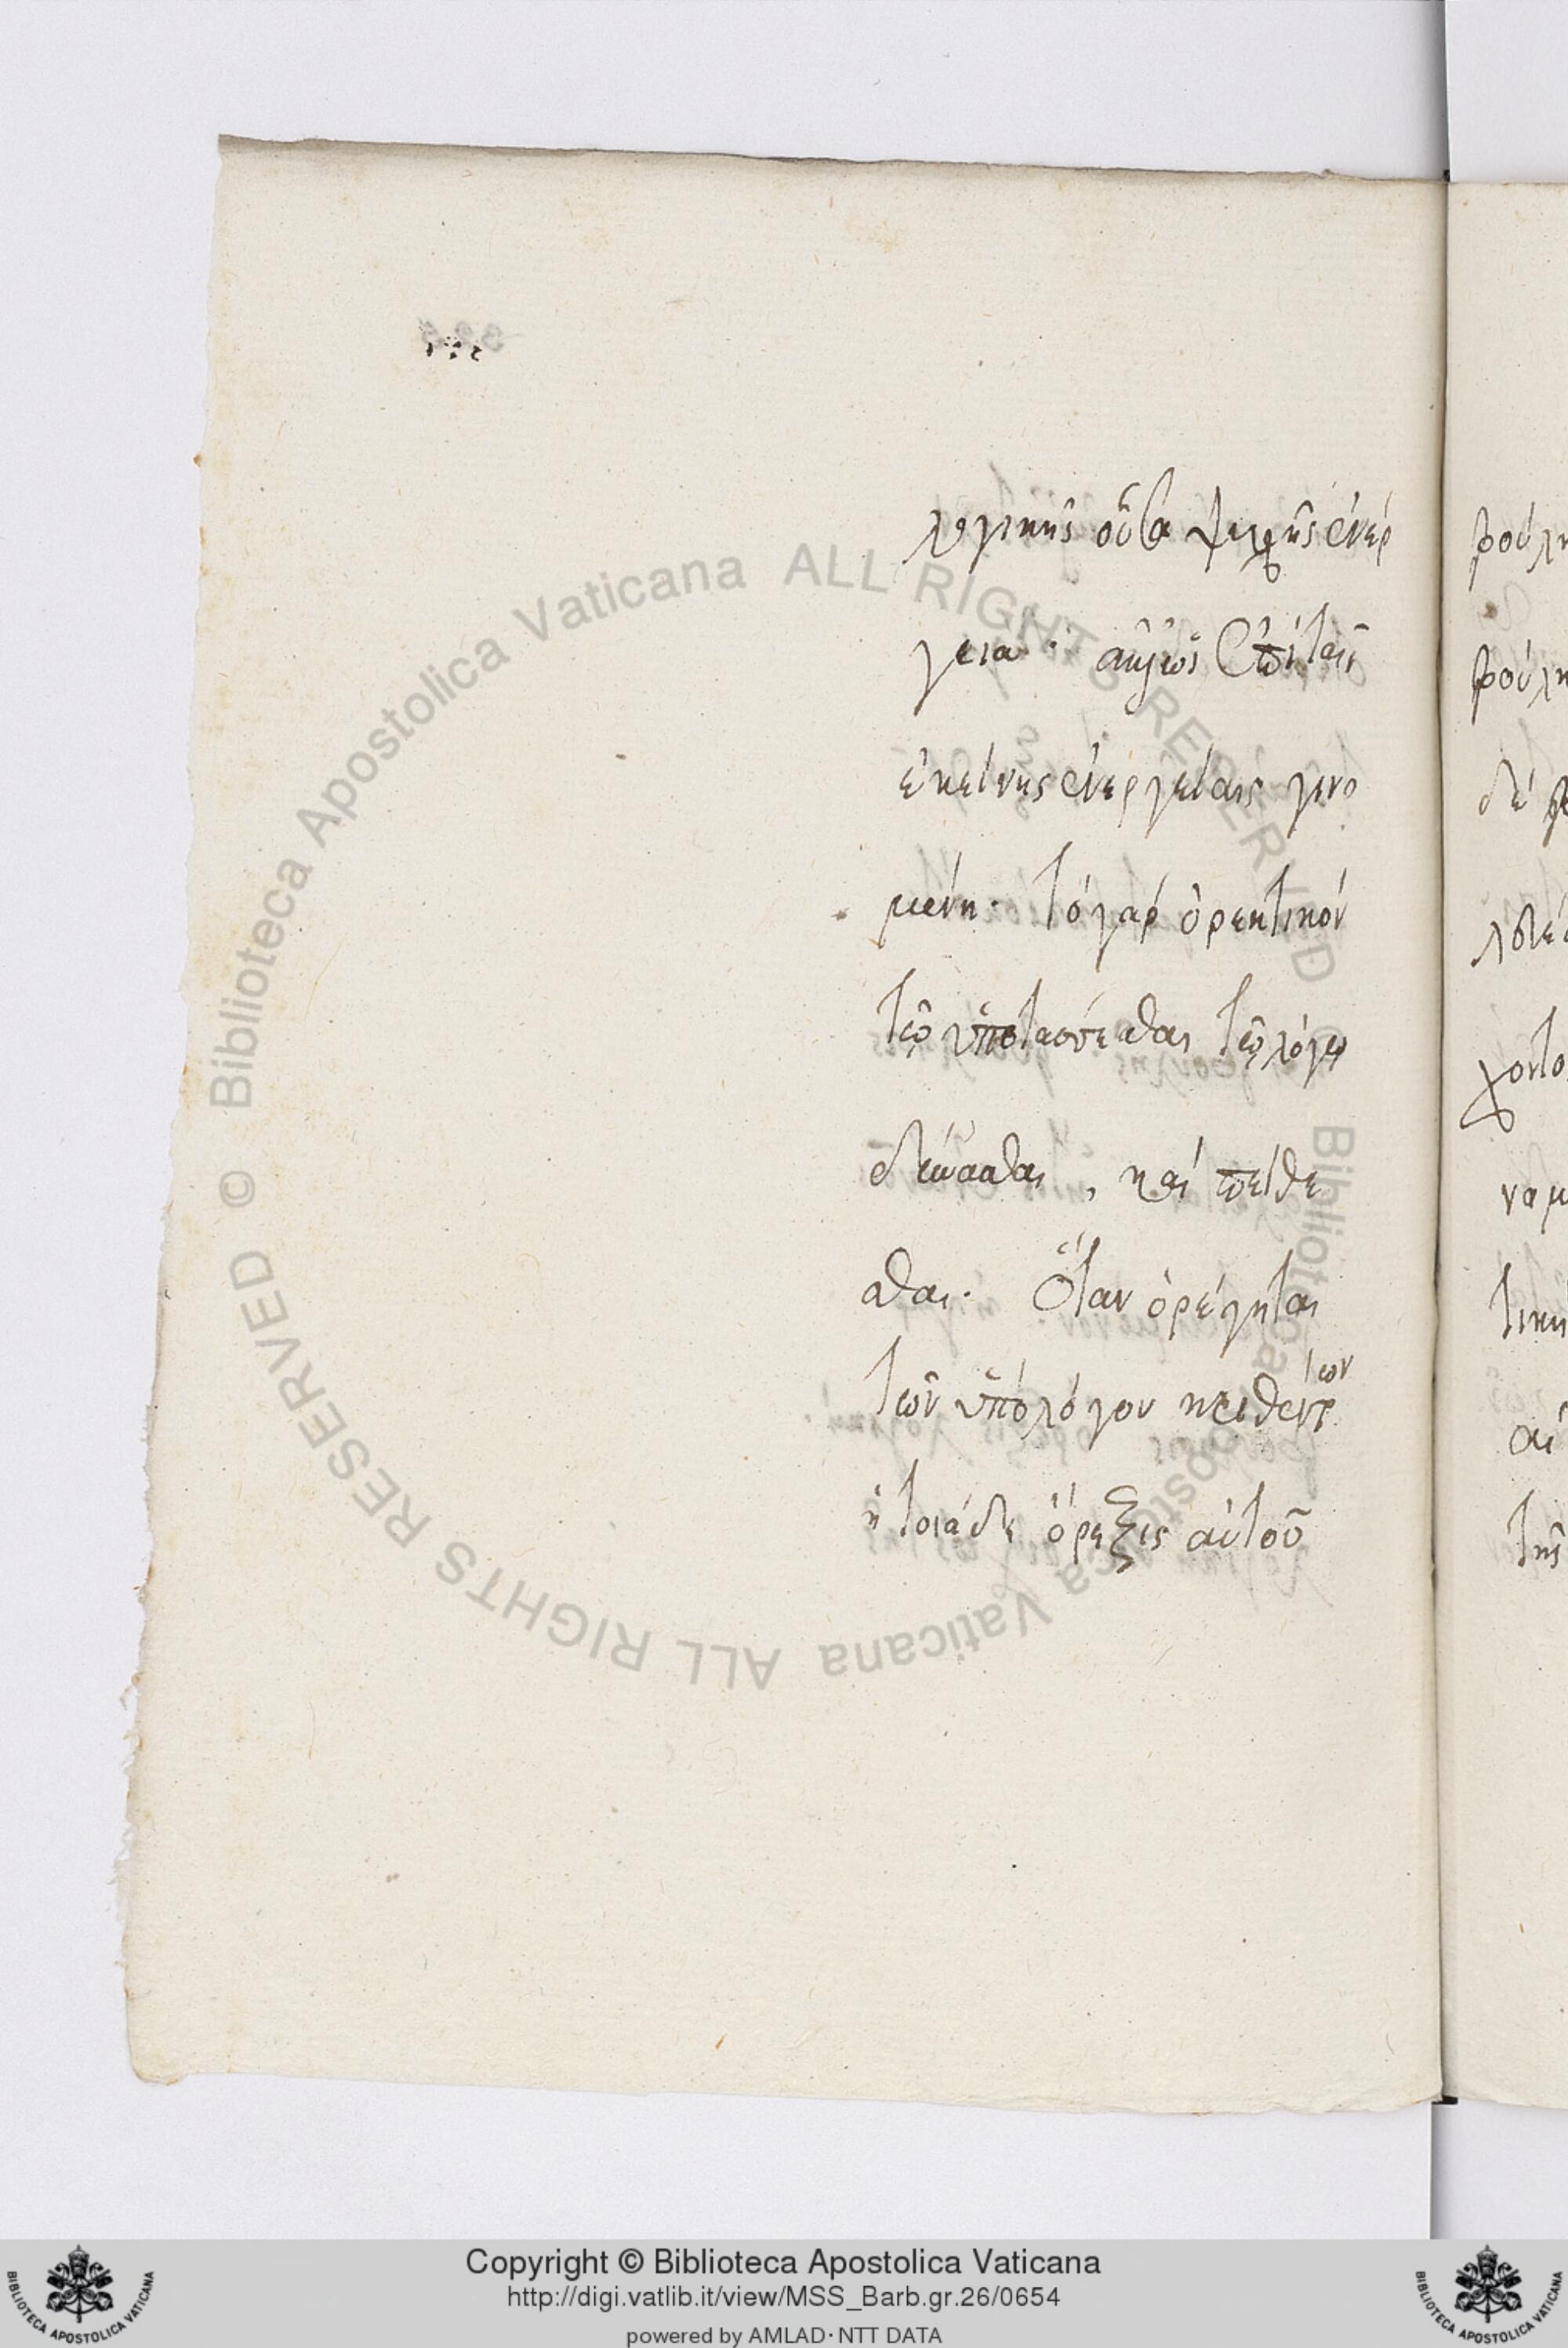 λογικῆς οὖσα ψυχῆς ἐνέρ
γεια· ἀλλ' ὡς ἐπὶ ταῖς
ἐκείνης ἐνεργείαις γινο
μένη· τὸ γὰρ ὀρεκτικόν
τῷ ὑποτάσσεσθαι τῷ λόγῳ
δύνασθαι, καὶ πείθε
σθαι· Ὅταν ὀρέγηται
τῶν ὑπὸ λόγου κριθέντων
ἡ τοιάδε ὄρεξις αὐτοῦ
βούλη
βούλη
δὲ
χοντο
ναμ
τικη
αἱ
τῆς
© Biblioteca Apostolica Vaticana ALL RIGHTS RESERVED © Biblioteca Apostolica Vaticana ALL RIGHTS RESERVED
BIBLIOTECA APOSTOLICA VATICANA
Copyright © Biblioteca Apostolica Vaticana
http://digi.vatlib.it/view/MSS_Barb.gr.26/0654
powered by AMLAD · NTT DATA
BIBLIOTECA APOSTOLICA VATICANA